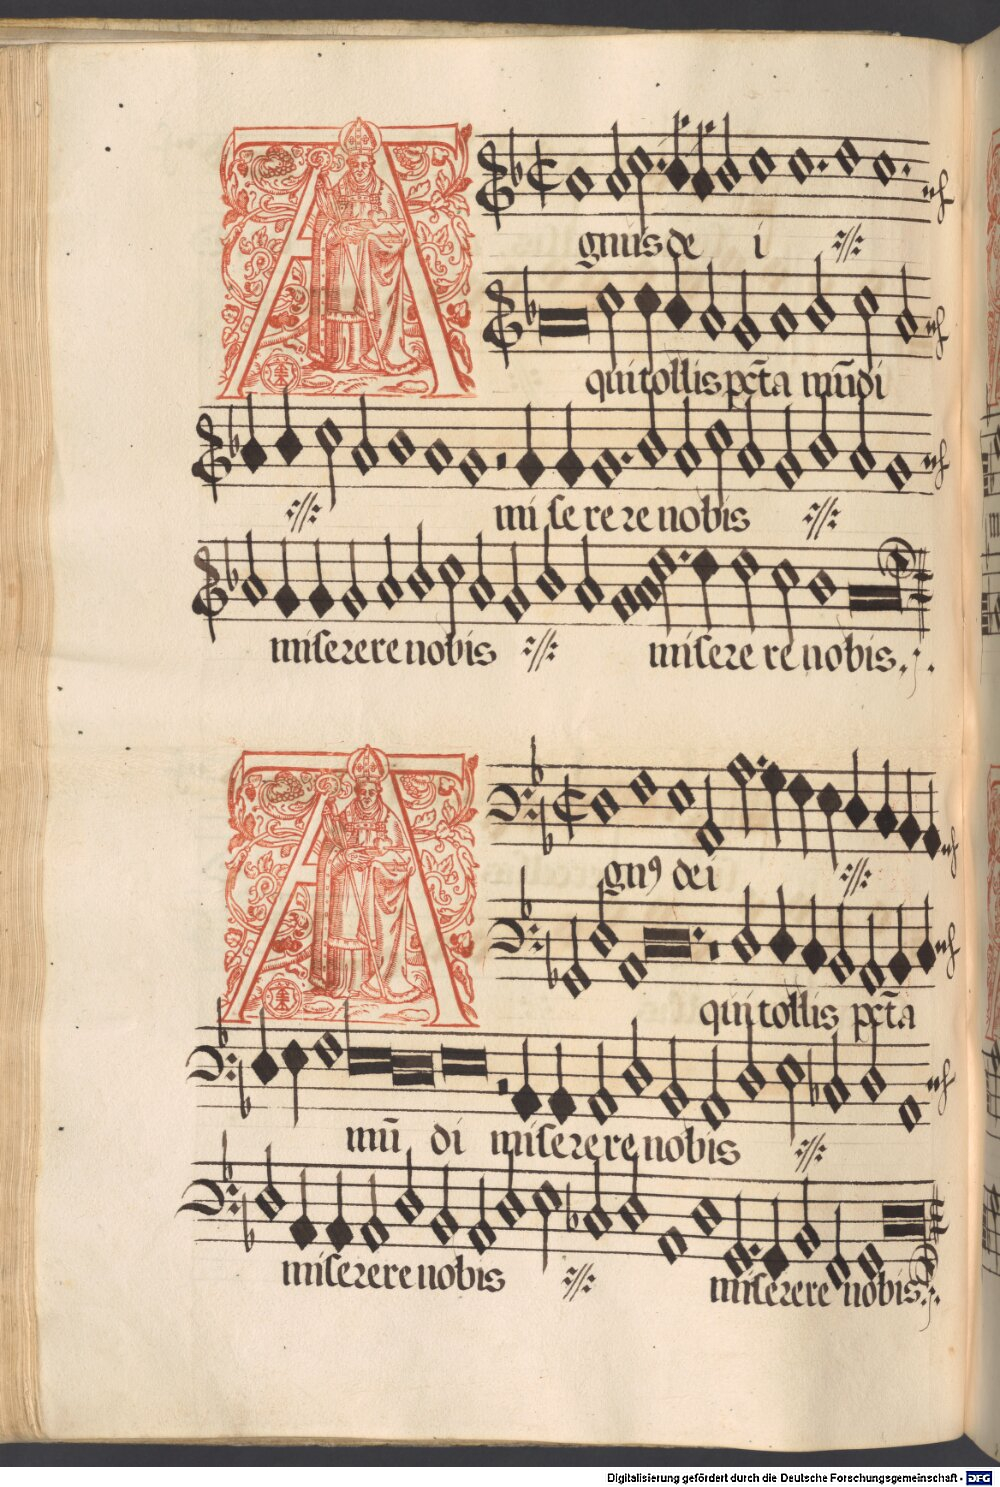 Agnus de i
qui tollis pct̄a mūdi
mi se re re nobis
miserere nobis miserere nobis.
Agnꝰ dei
qui tollis pct̄a
mū di miserere nobis
miserere nobis miserere nobis.
Digitalisierung gefördert durch die Deutsche Forschungsgemeinschaft - DFG